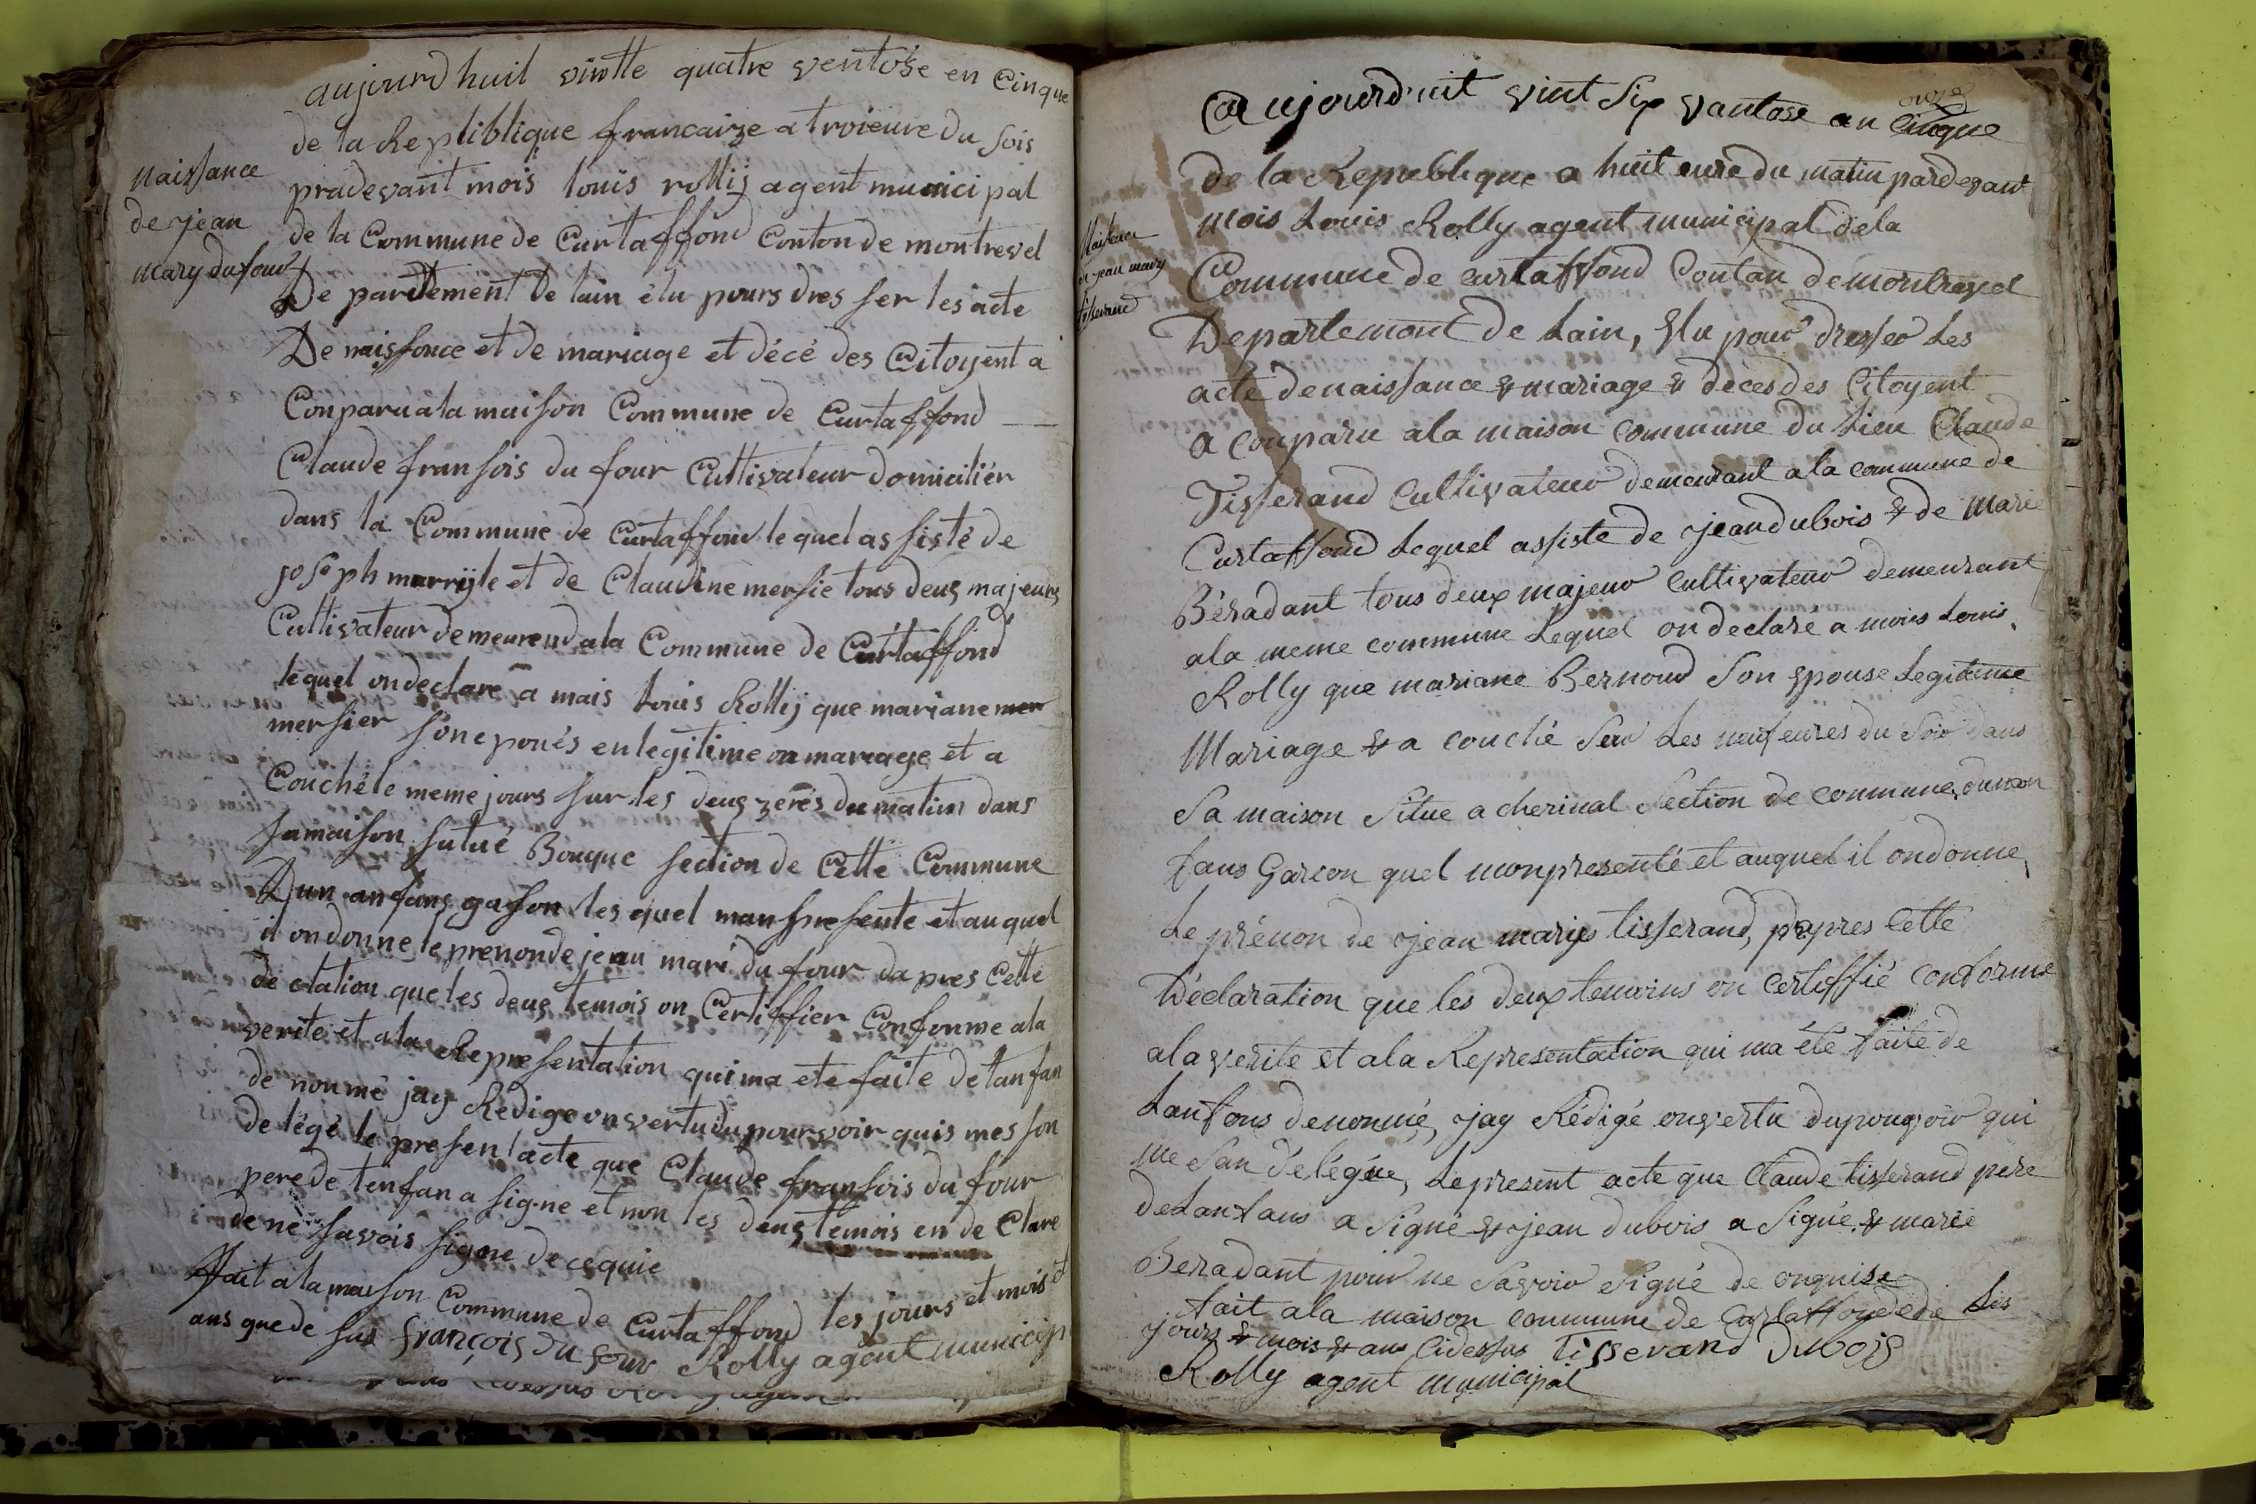 aujourd huil vintte quatre ventose en Cinque
de la Repliblique francaize a troieure du sois
naissance
de jean
mary dufour
pradevant mois louis rollij agent municipal
de la Commune de Curtaffond Conton de montrevel
De partement de lain élu pours dres ser les acte
De naissonce et de mariage et décé des Citoyent a
Conparu a la maison Commune de Curtaffond
Claude fransois du four Cultivateur domiciliér
dans la Commune de Curtaffond le quel as sisté de
joseph et de Claudine mersie tous deus majeurs
Cultivateur demeurend a la Commune de Curtaffond
lequel on declare a mais louis Rollij que mariane mer
mersier son epoués en legitime on mariage et a
Couché le meme jours sur les deus zerés du matim dans
sa maison sutué Bouque section de Cette Commune
D'un anfans gason les quel man presente et au quel
il on donne le prenon de jeau mari du four da pres Cette
de clation que les deus temois on Certiffier Conforme ala
verité et a la Representation qui ma ete faite de lan fan
de nonmé jay Redige on vertu du pourvoir quis mes son
de légé le presen lacte que Claude fransois du four
pere de lenfan a signe et non les deus temois en de Clare
de ne savois signe de ce quie
Fait a la maison Commune de Curtaffond les jours et mois et
ans que de sus françois du four Rolly agent municip
Aujourd'uit vint six vantose an Cinque
onze
de la Republique a huit eure du matin pardevant
mois Louis Rolly agent municipal dela
Naisence
de jean mary
tisserand
Commune de curtaffond Contan de montrevel
Departemont de Lain, Elu pour dresser Les
acte denaissance & mariage & décés des Citoyent
a conparu ala maison commune du Lieu Claude
Tisserand Cultivateur demeurant a la commune de
Curtaffond Lequel assiste de jean dubois & de Marie
Béradant tous deux majeur cultivateur demeurant
ala meme commune Lequel on declaré a mois Louis
Rolly que mariane Bernoud son epouse Legitime
Mariage & a couché sur Les neuf eures du Soir dans
Sa maison Situe a cherinal Section de commune, dunon
fans Garcon quel monpresenté et auquel il ondonne
Le prénon de jean marie tisserand, dapres Cette
Déclaration que les deux temoins on certiffié conforme
ala verite et ala Representation qui ma été faite de
Lanfons denonmé, jay Rédigé onvertu dupouvoir qui
me San délégue, Lepresent acte que Claude tisserand pere
deLanfans a Signé & jean dubois a Signé & marie
Beradant pour ne Savoir Signé de onquise
fait ala maison commune de Les
jours & mois & ans Cidessus tisserand Dubois
Rolly agent municipal